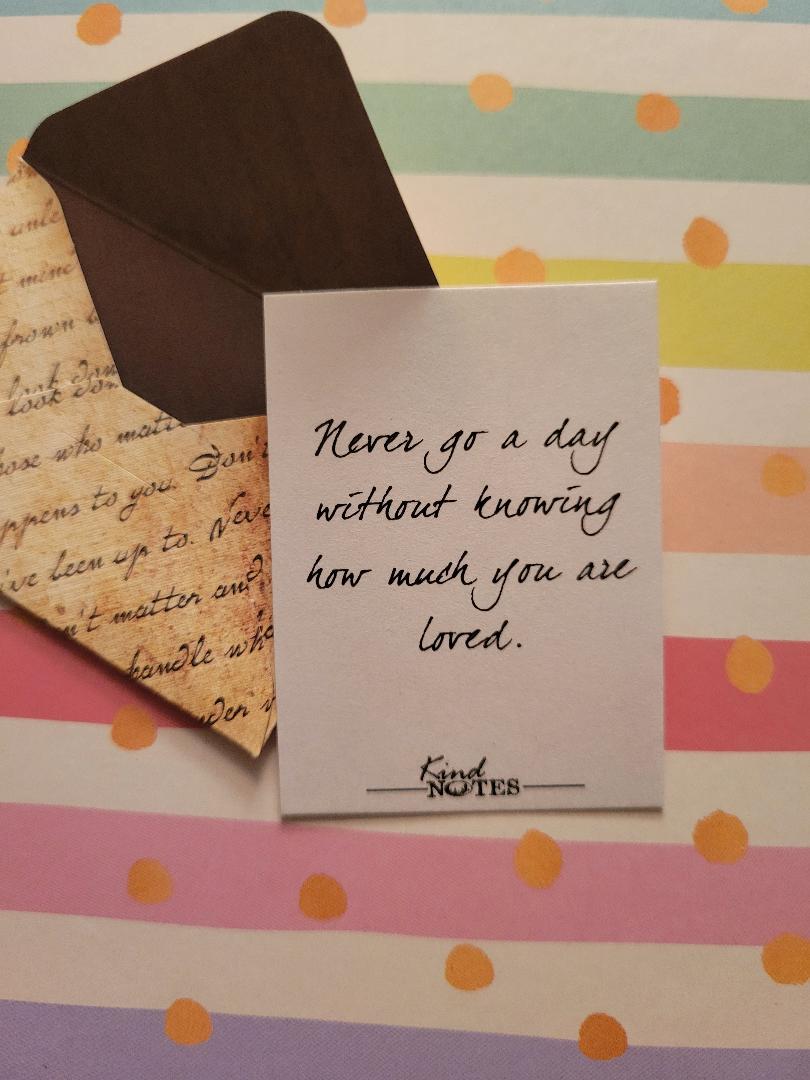 unle
t mind
frown
look don
hose who matt
ppens to you. Don't
've been up to. Neve
n't matter and
handle wh
nder w
Never go a day
without knowing
how much you are
loved.
Kind
NOTES